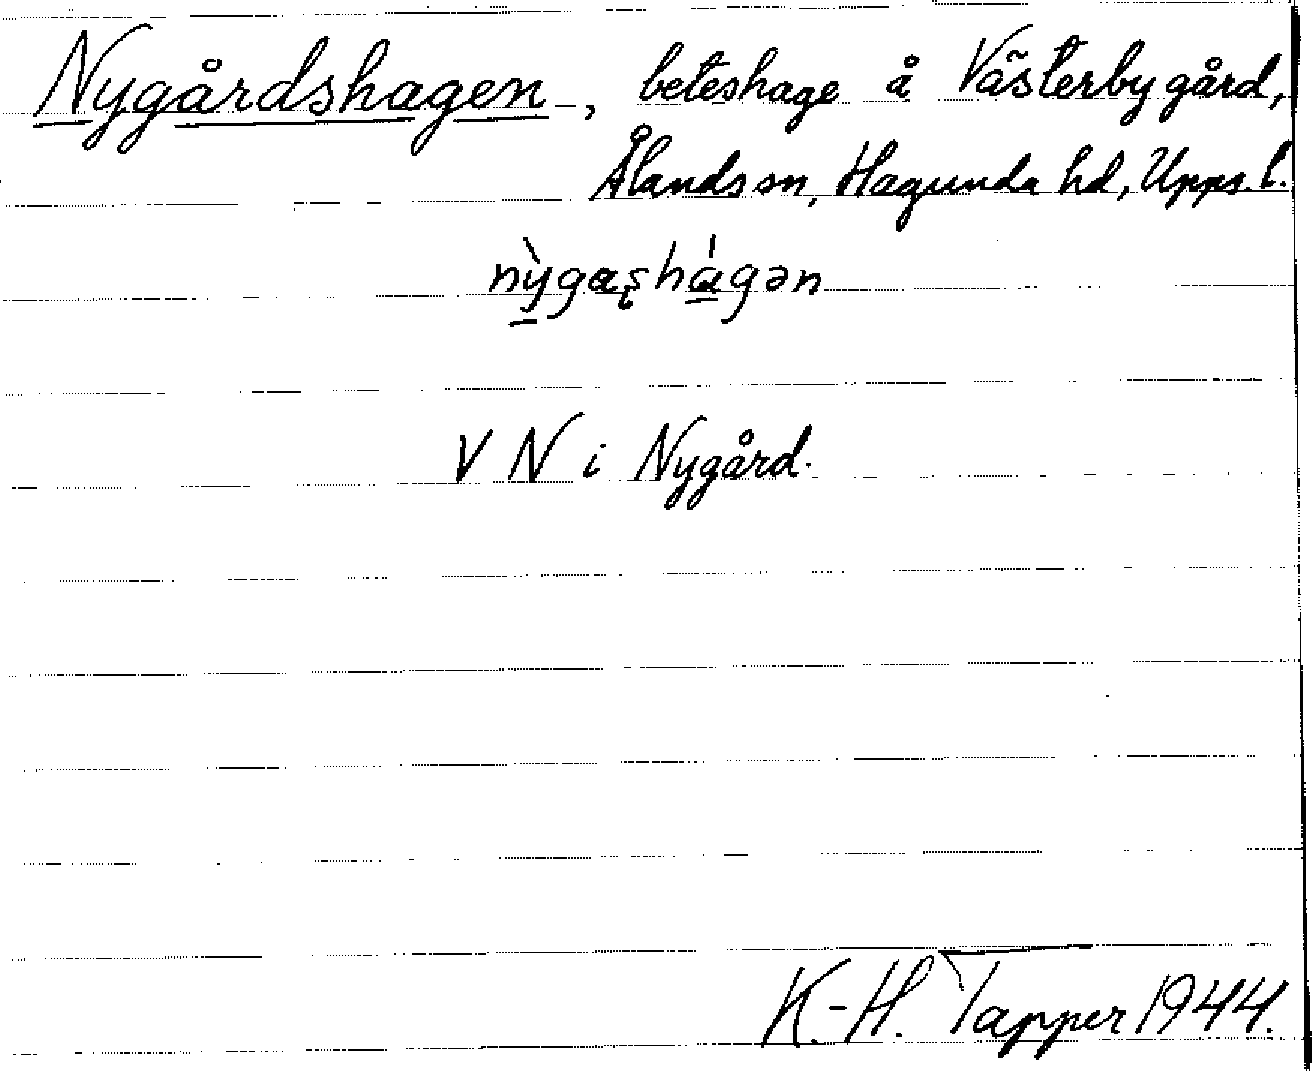 Nygårdshagen, beteshage å Västerbygård,
Ålands sn, Hagunda hd, Upps. l.
nỳgaʂhágən
V N i Nygård.
K.-H. Tapper 1944.